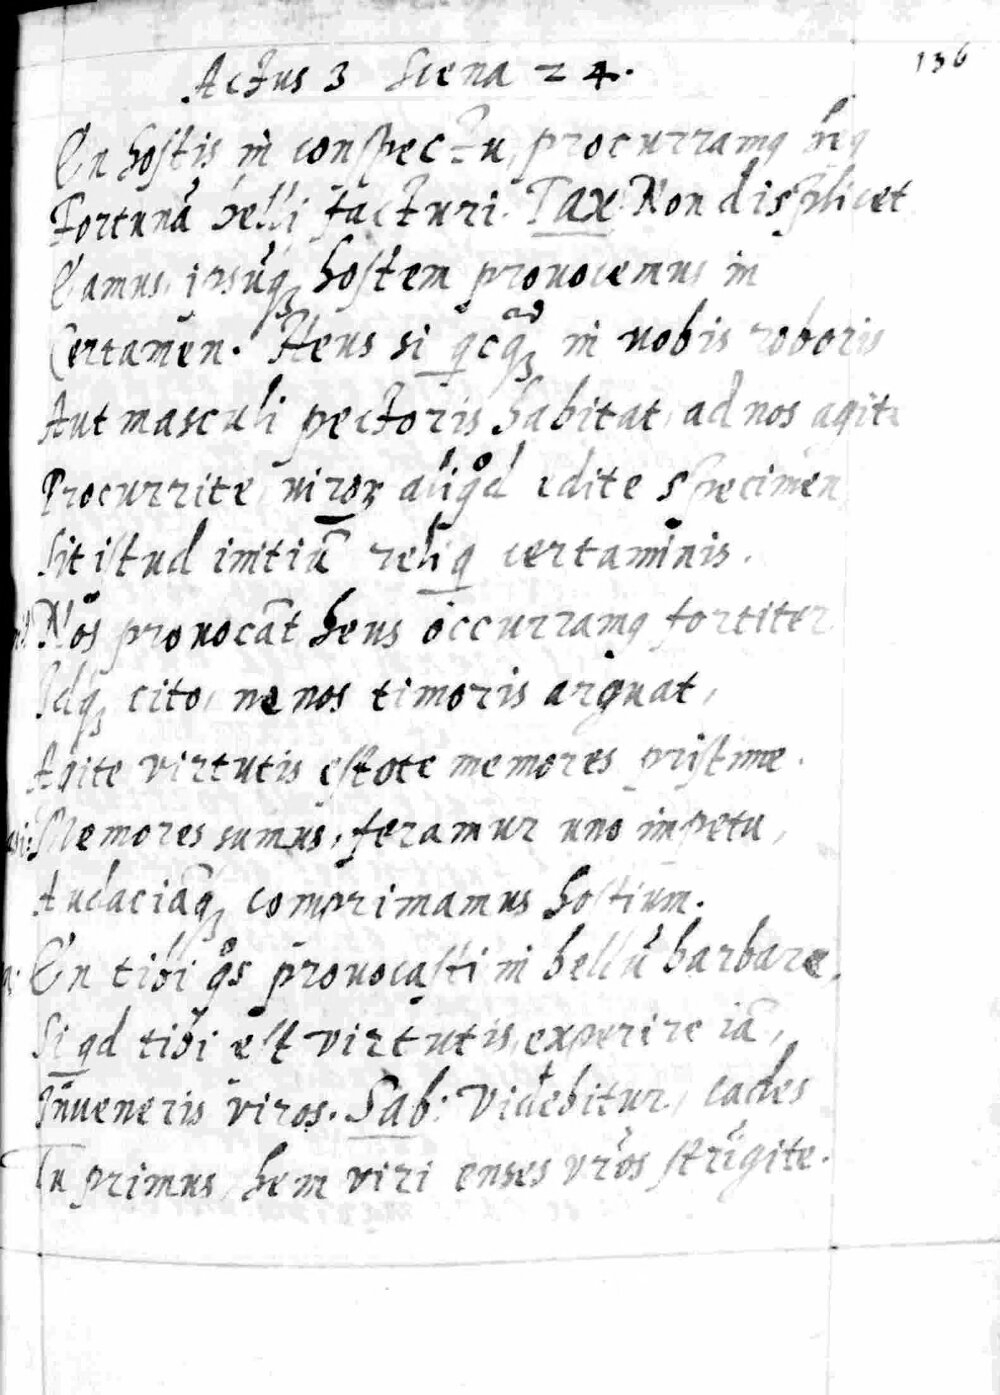 136
Actus 3 Scena 24.
En hostis in conspectu, procurramq
Fortunā belli facturi. Tax: Non displicet
Eamus, ipsūq₃ hostem prouocemus in
Certamen. Heus si qcq₃ in uobis roboris
Aut masculi pectoris habitat, ad nos agite
Procurrite, uiroꝝ aliqd edite specimen
Sit istud initiū reliq certaminis.
Nos prouocāt heus occurramq fortiter
Idq₃ cito, ne nos timoris arguat,
Agite virtutis estote memores pristinæ.
Memores sumus, feramur uno impetu,
Audaciāq₃ comprimamus hostium.
En tibi qs prouocasti in bellū barbare,
Si qd tibi est virtutis, experire iā,
Inueneris viros. Sab: Videbitur, cades
Tu primus, hem viri enses vr̄os strīgite.